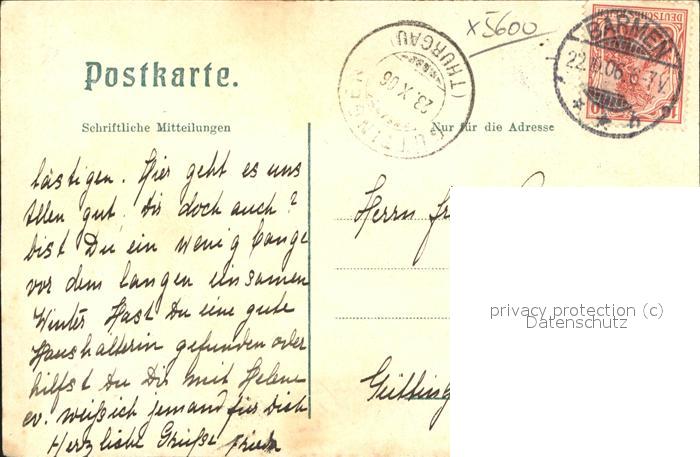 x5600
Postkarte.
Schriftliche Mitteilungen
Nur für die Adresse
BARMEN
22. 06. 6-7V.
h
DEUTSCHES
10
GÜTTINGEN
(THURGAU)
23.X.06
lästigen. Hier geht es uns
Allen gut. Dir doch auch?
bist Du ein wenig bange
vor dem langen einsamen
Winter. Hast Du eine gute
Haushälterin gefunden oder
hilfst Du Dir mit Helene
ev. weiß ich jemand für Dich
Herzliche Grüße Frieda
Herrn
Gütting
privacy protection (c)
Datenschutz